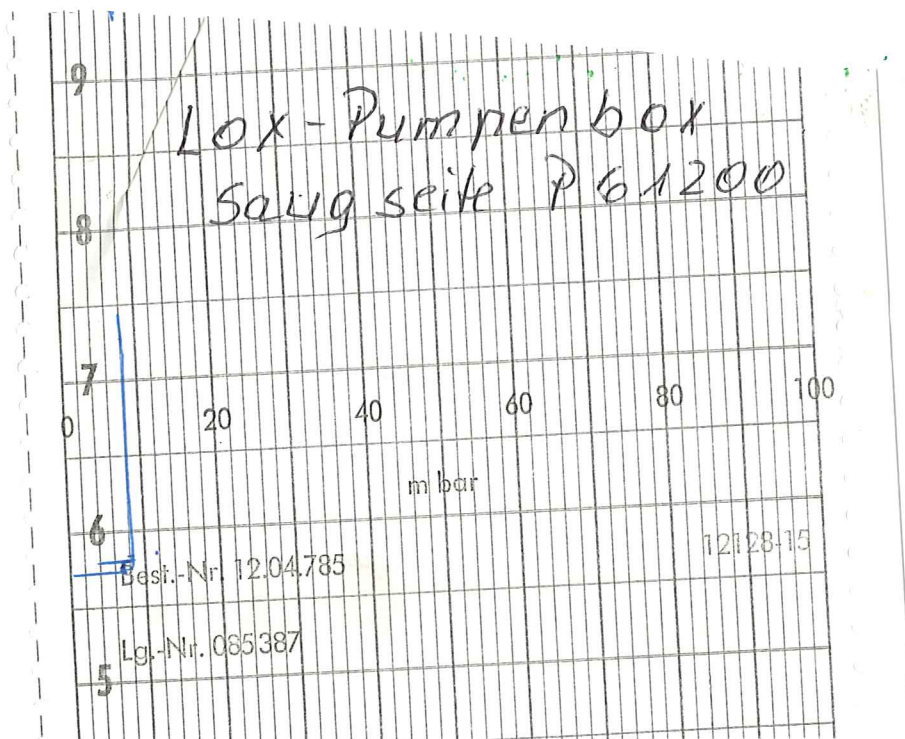 9
Lox-Pumpenbox
Saugseite P61200
8
7
0 20 40 60 80 100
m bar
6
12128-15
Best.-Nr. 12.04.785
Lg.-Nr. 085387
5